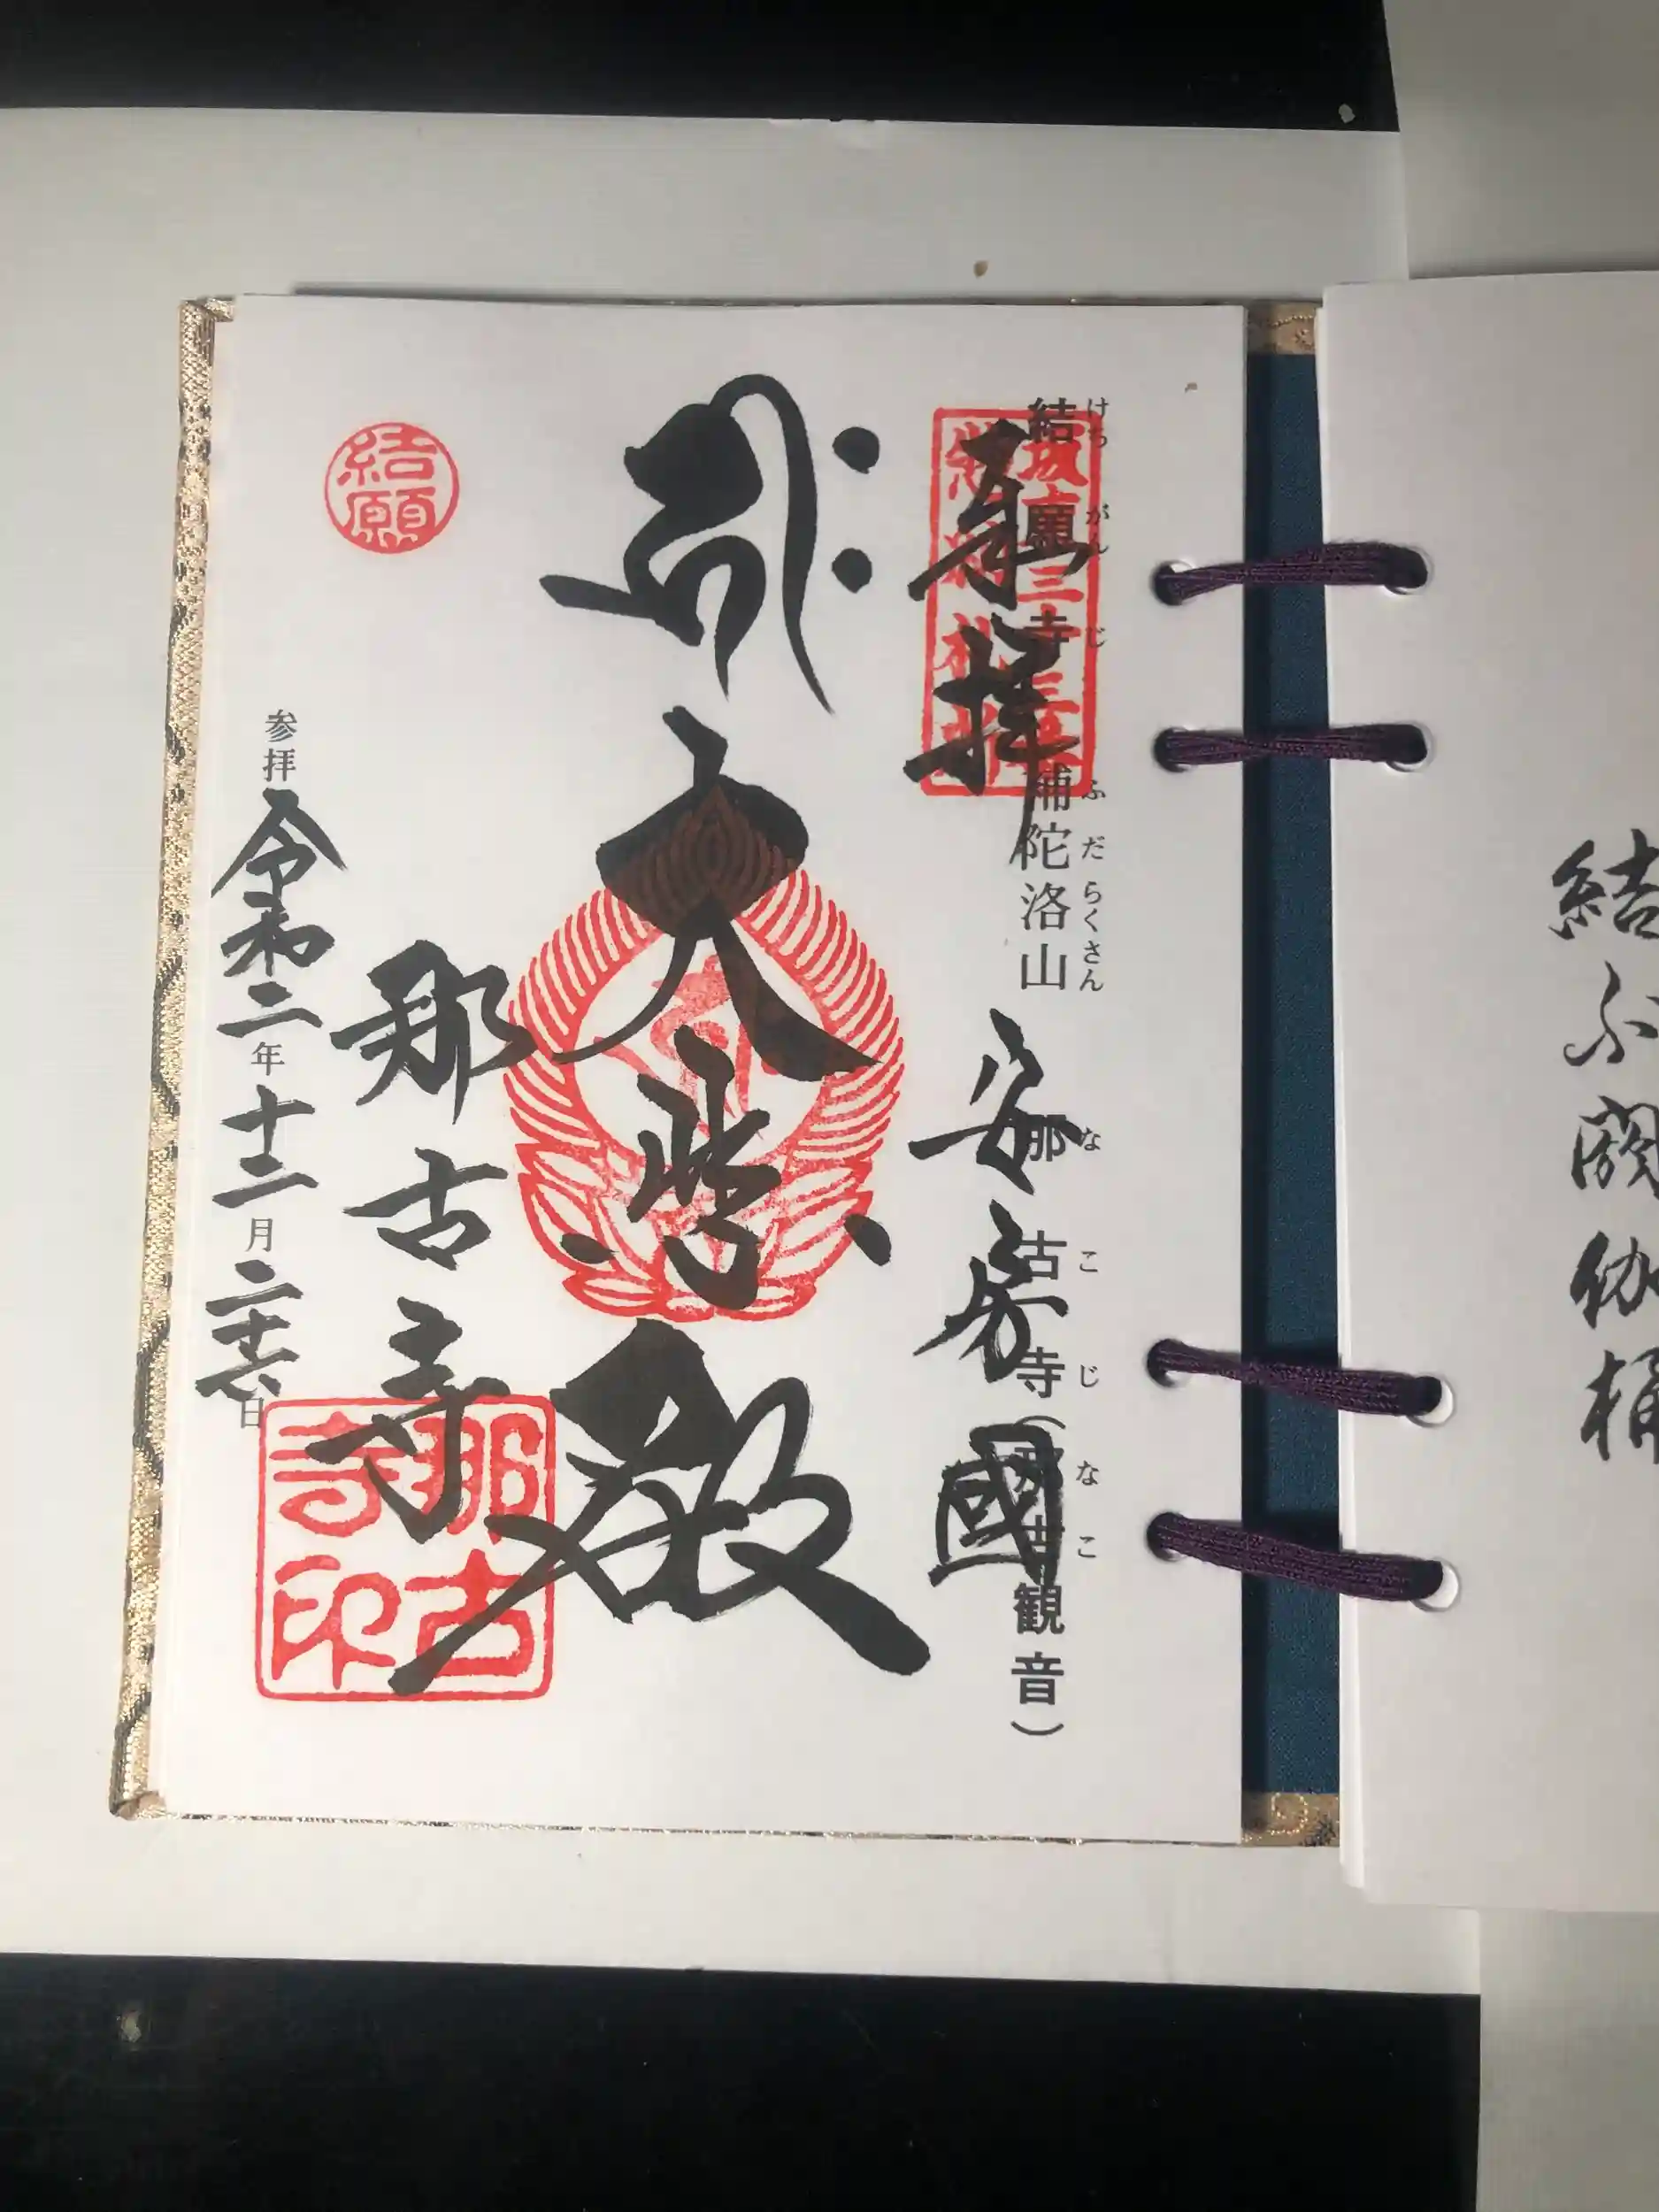 結ふ閼伽桶
けちがんじ ふだらくさん なこじ なこ
結願寺 補陀洛山 那古寺(那古観音)
奉拝 安房國
大悲殿
那古寺
那古寺印
結願
参拝 令和二年十二月二十六日